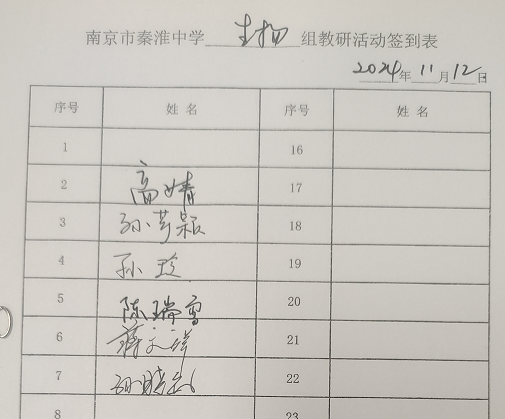 南京市秦淮中学 生物 组教研活动签到表
2024年11月12日
序号 姓名 序号 姓名
1 16
2 高婧 17
3 孙芳颖 18
4 孙珍 19
5 陈瑞雪 20
6 蒋文祥 21
7 孙晓 22
8 23